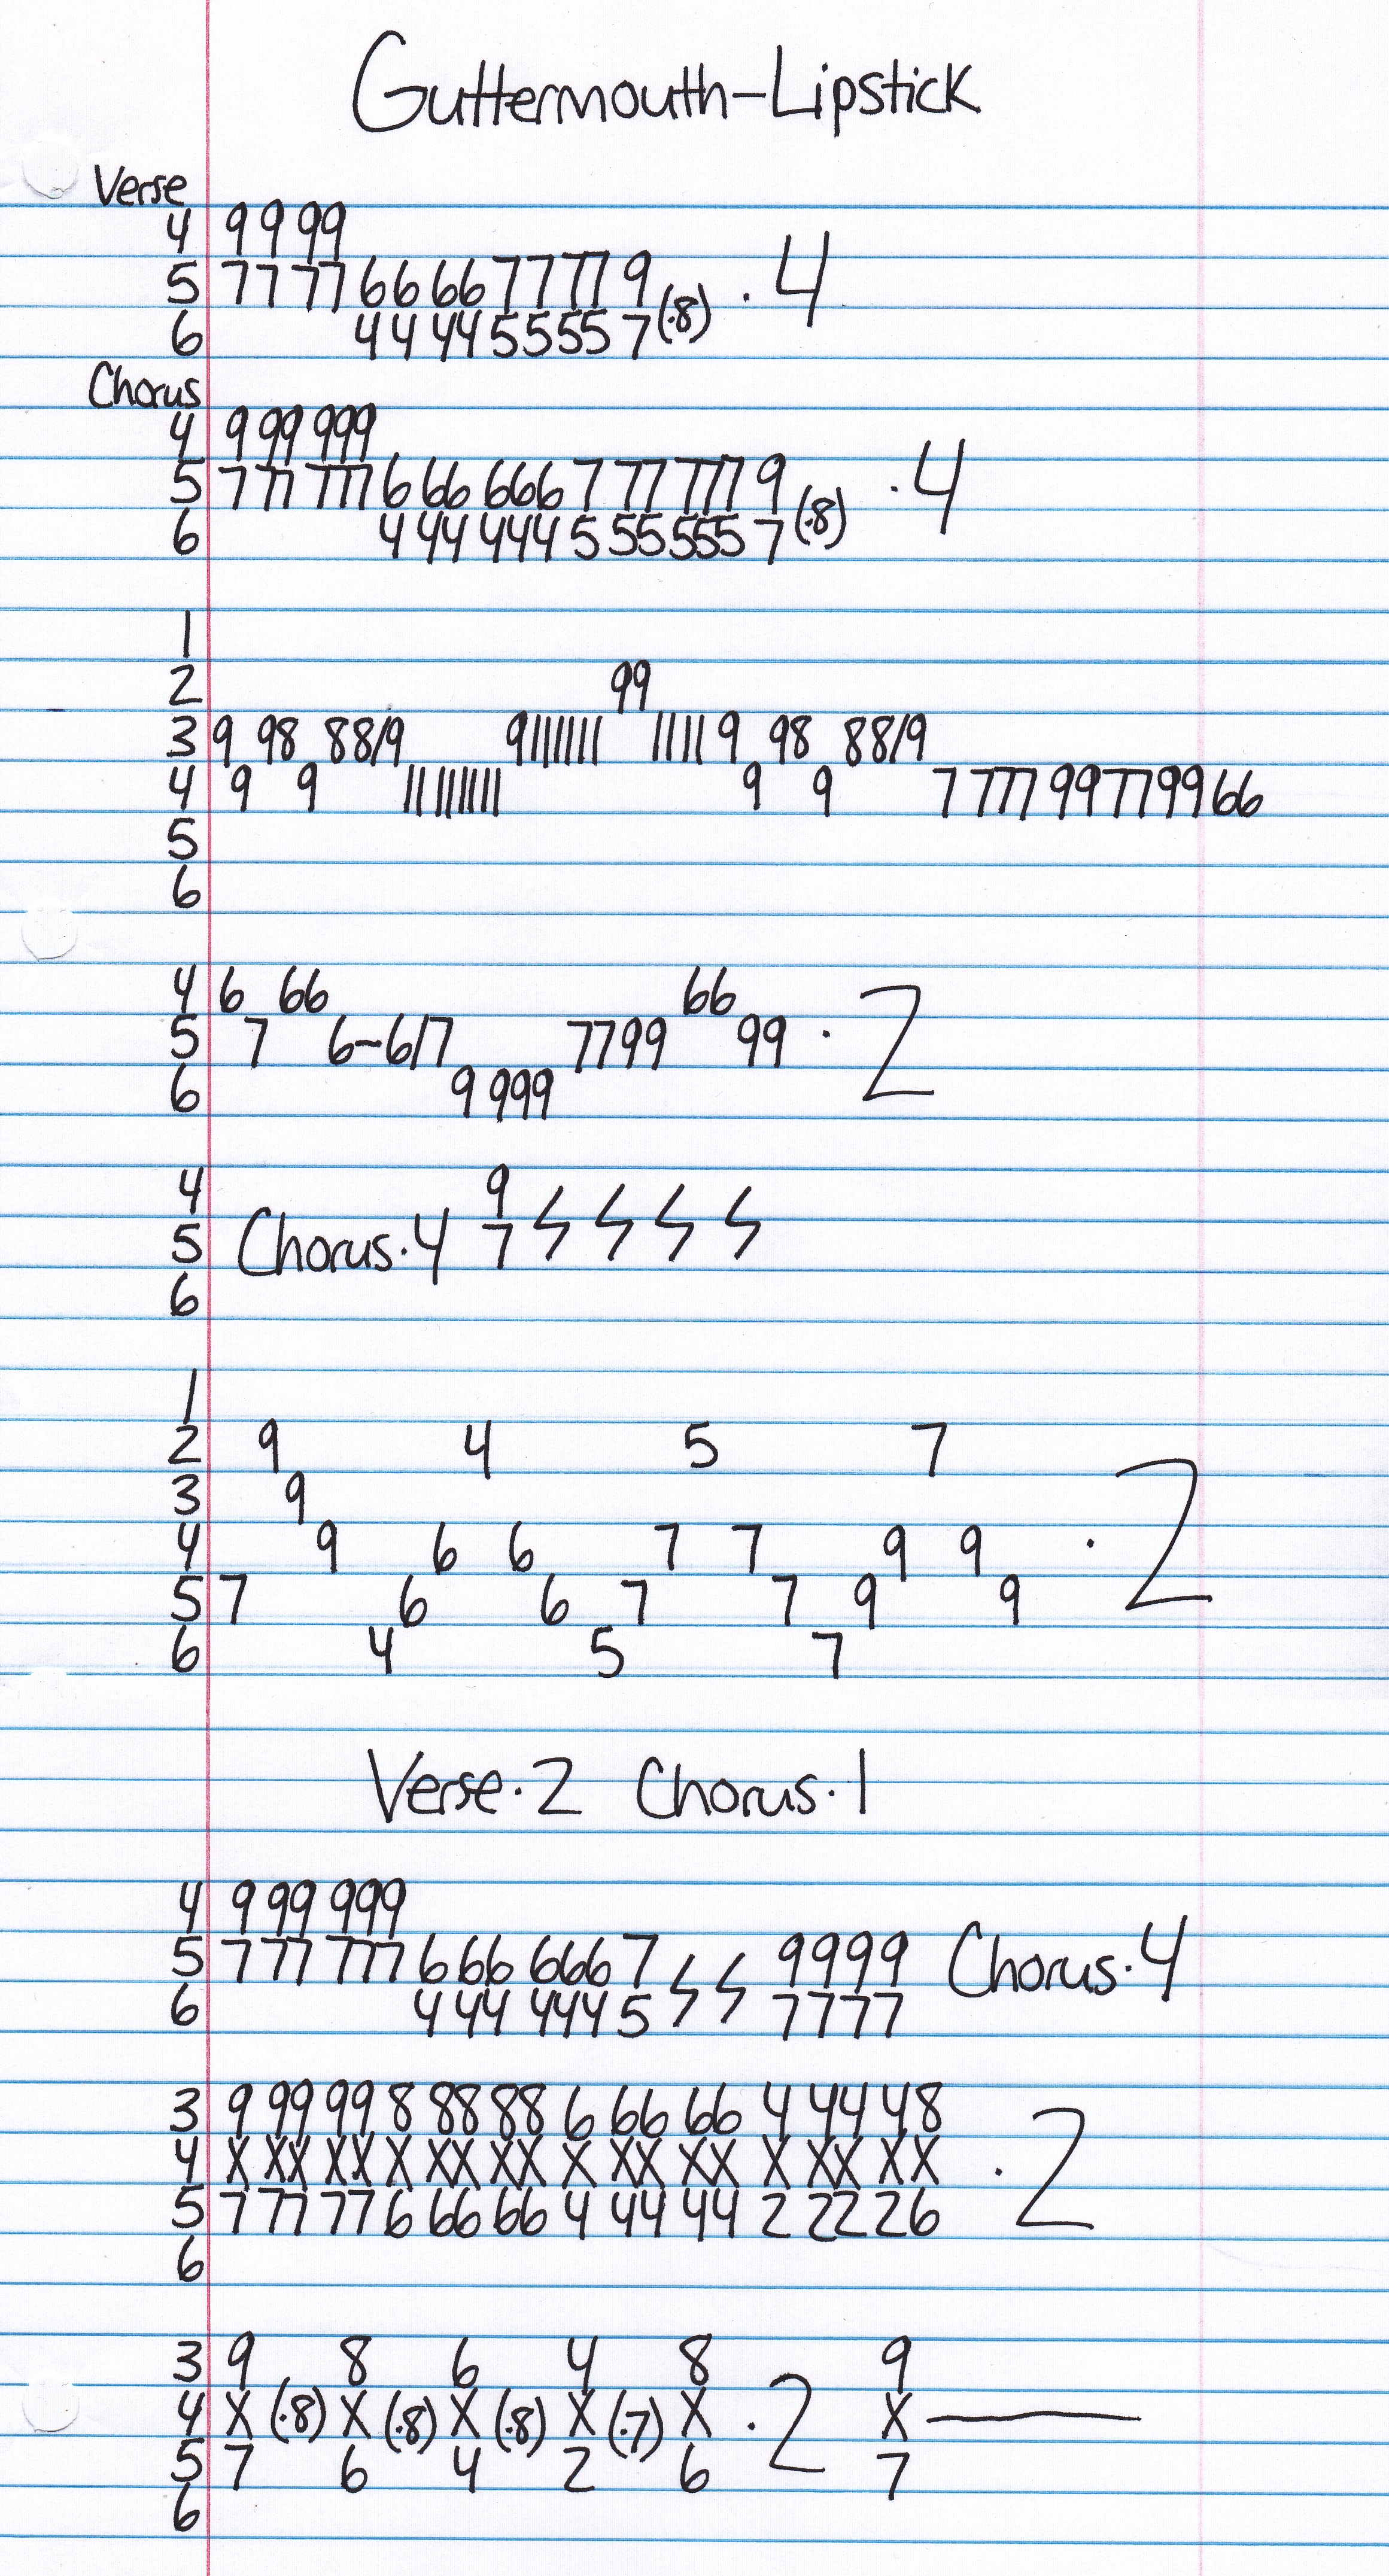 Guttermouth-Lipstick
Verse
4 9 9 99
5 77 77 66 66 77 77 9
6 44 44 5555 7 (·8) · 4
Chorus
4 9 99 999
5 7 77 777 6 66 666 7 77 777 9
6 4 44 444 5 55 555 7 (·8) · 4
1
2 99
3 9 98 88/9 9||||||| |||| 9 98 88/9
4 9 9 ||||||||| 9 9 7 777 99 77 99 66
5
6
4 6 66 66
5 7 6-6/7 7799 99 · 2
6 9 999
4 9
5 Chorus·4 7
6
1
2 9 4 5 7
3 9
4 9 6 6 7 7 9 9
5 7 6 6 7 7 9 9 · 2
6 4 5 7
Verse·2 Chorus·1
4 9 99 999
5 7 77 777 6 66 666 7 9999 Chorus·4
6 4 44 444 5 7777
3 9 99 99 8 88 88 6 66 66 4 44 48
4 X XX XX X XX XX X XX XX X XX XX · 2
5 7 77 77 6 66 66 4 44 44 2 22 26
6
3 9 8 6 4 8 9
4 X (·8) X (·8) X (·8) X (·7) X · 2 X
5 7 6 4 2 6 7
6